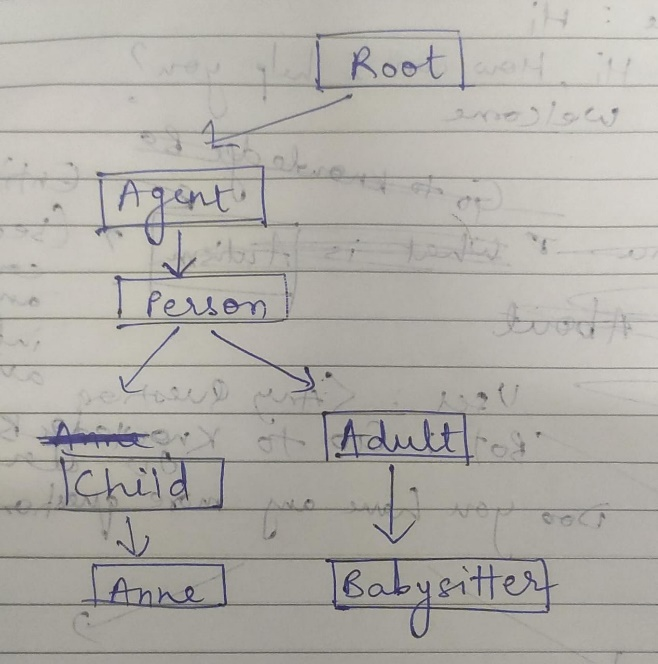 Root
Agent
Person
Anne
Adult
Child
Anne
Babysitter